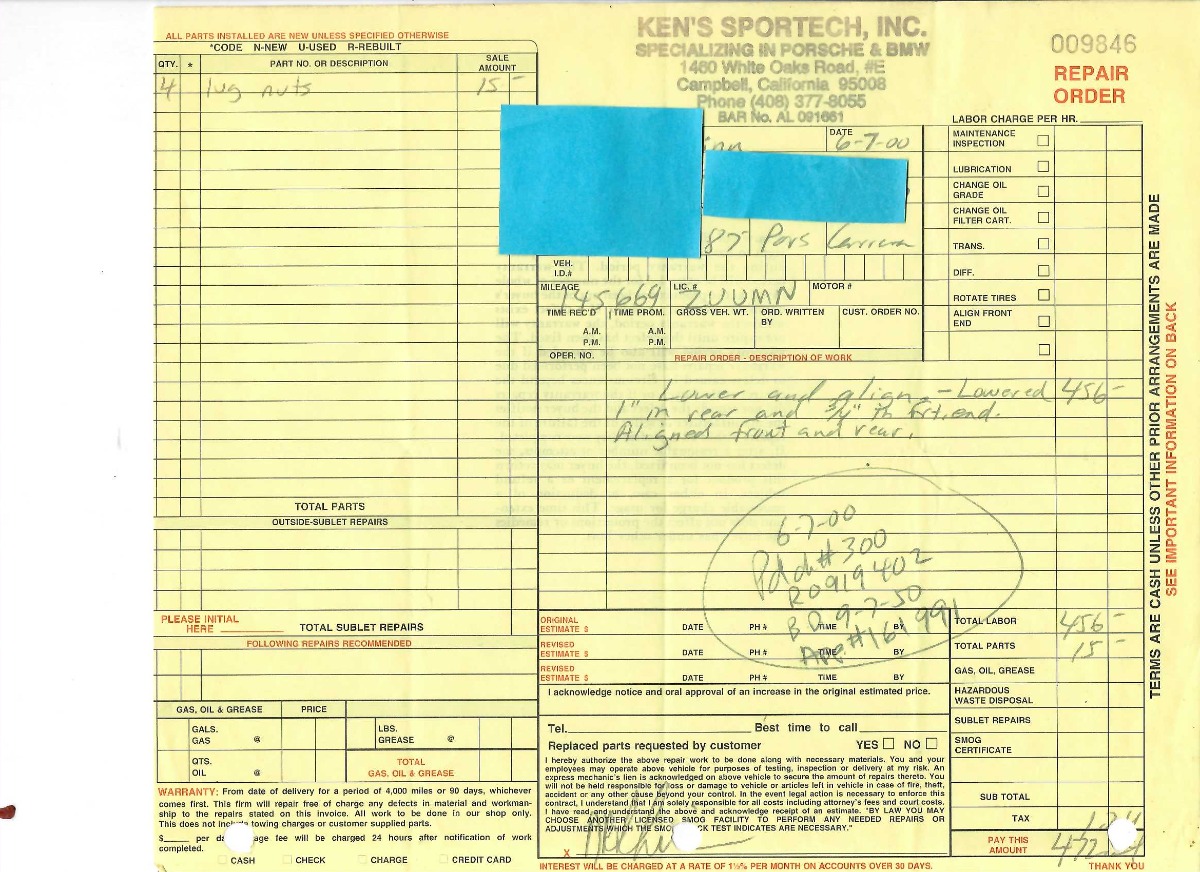 KEN'S SPORTECH, INC.
SPECIALIZING IN PORSCHE & BMW
1460 White Oaks Road, #E
Campbell, California 95008
Phone (408) 377-8055
BAR No. AL 091661
009846
REPAIR
ORDER
ALL PARTS INSTALLED ARE NEW UNLESS SPECIFIED OTHERWISE
*CODE N-NEW U-USED R-REBUILT
QTY. * PART NO. OR DESCRIPTION SALE AMOUNT
4 lug nuts 15-
TOTAL PARTS
OUTSIDE-SUBLET REPAIRS
PLEASE INITIAL
HERE TOTAL SUBLET REPAIRS
FOLLOWING REPAIRS RECOMMENDED
GAS, OIL & GREASE PRICE
GALS. GAS @ LBS. GREASE @
QTS. OIL @ TOTAL GAS, OIL & GREASE
WARRANTY: From date of delivery for a period of 4,000 miles or 90 days, whichever
comes first. This firm will repair free of charge any defects in material and workman-
ship to the repairs stated on this invoice. All work to be done in our shop only.
This does not include towing charges or customer supplied parts.
$ per day age fee will be charged 24 hours after notification of work
completed.
CASH CHECK CHARGE CREDIT CARD
DATE
6-7-00
87 Pors Carrera
VEH. I.D.#
MILEAGE 145669 LIC. # ZUUMN MOTOR #
TIME REC'D TIME PROM. GROSS VEH. WT. ORD. WRITTEN BY CUST. ORDER NO.
A.M. A.M.
P.M. P.M.
OPER. NO. REPAIR ORDER - DESCRIPTION OF WORK
Lower and align - Lowered 456-
1" in rear and 3/4" in frt. end.
Aligned front and rear.
6-7-00
Pd ch# 300
R0919402
BD 9-7-50
161991
ORIGINAL ESTIMATE $ DATE PH # TIME BY
REVISED ESTIMATE $ DATE PH # TIME BY
REVISED ESTIMATE $ DATE PH # TIME BY
I acknowledge notice and oral approval of an increase in the original estimated price.
Tel. Best time to call
Replaced parts requested by customer YES NO
I hereby authorize the above repair work to be done along with necessary materials. You and your
employees may operate above vehicle for purposes of testing, inspection or delivery at my risk. An
express mechanic's lien is acknowledged on above vehicle to secure the amount of repairs thereto. You
will not be held responsible for loss or damage to vehicle or articles left in vehicle in case of fire, theft,
accident or any other cause beyond your control. In the event legal action is necessary to enforce this
contract, I understand that I am solely responsible for all costs including attorney's fees and court costs.
I have read and understand the above and acknowledge receipt of an estimate. "BY LAW YOU MAY
CHOOSE ANOTHER LICENSED SMOG FACILITY TO PERFORM ANY NEEDED REPAIRS OR
ADJUSTMENTS WHICH THE SMOG CHECK TEST INDICATES ARE NECESSARY."
X
INTEREST WILL BE CHARGED AT A RATE OF 1½% PER MONTH ON ACCOUNTS OVER 30 DAYS.
LABOR CHARGE PER HR.
MAINTENANCE INSPECTION
LUBRICATION
CHANGE OIL GRADE
CHANGE OIL FILTER CART.
TRANS.
DIFF.
ROTATE TIRES
ALIGN FRONT END
TOTAL LABOR 456-
TOTAL PARTS 15-
GAS, OIL, GREASE
HAZARDOUS WASTE DISPOSAL
SUBLET REPAIRS
SMOG CERTIFICATE
SUB TOTAL
TAX
PAY THIS AMOUNT
THANK YOU
TERMS ARE CASH UNLESS OTHER PRIOR ARRANGEMENTS ARE MADE
SEE IMPORTANT INFORMATION ON BACK